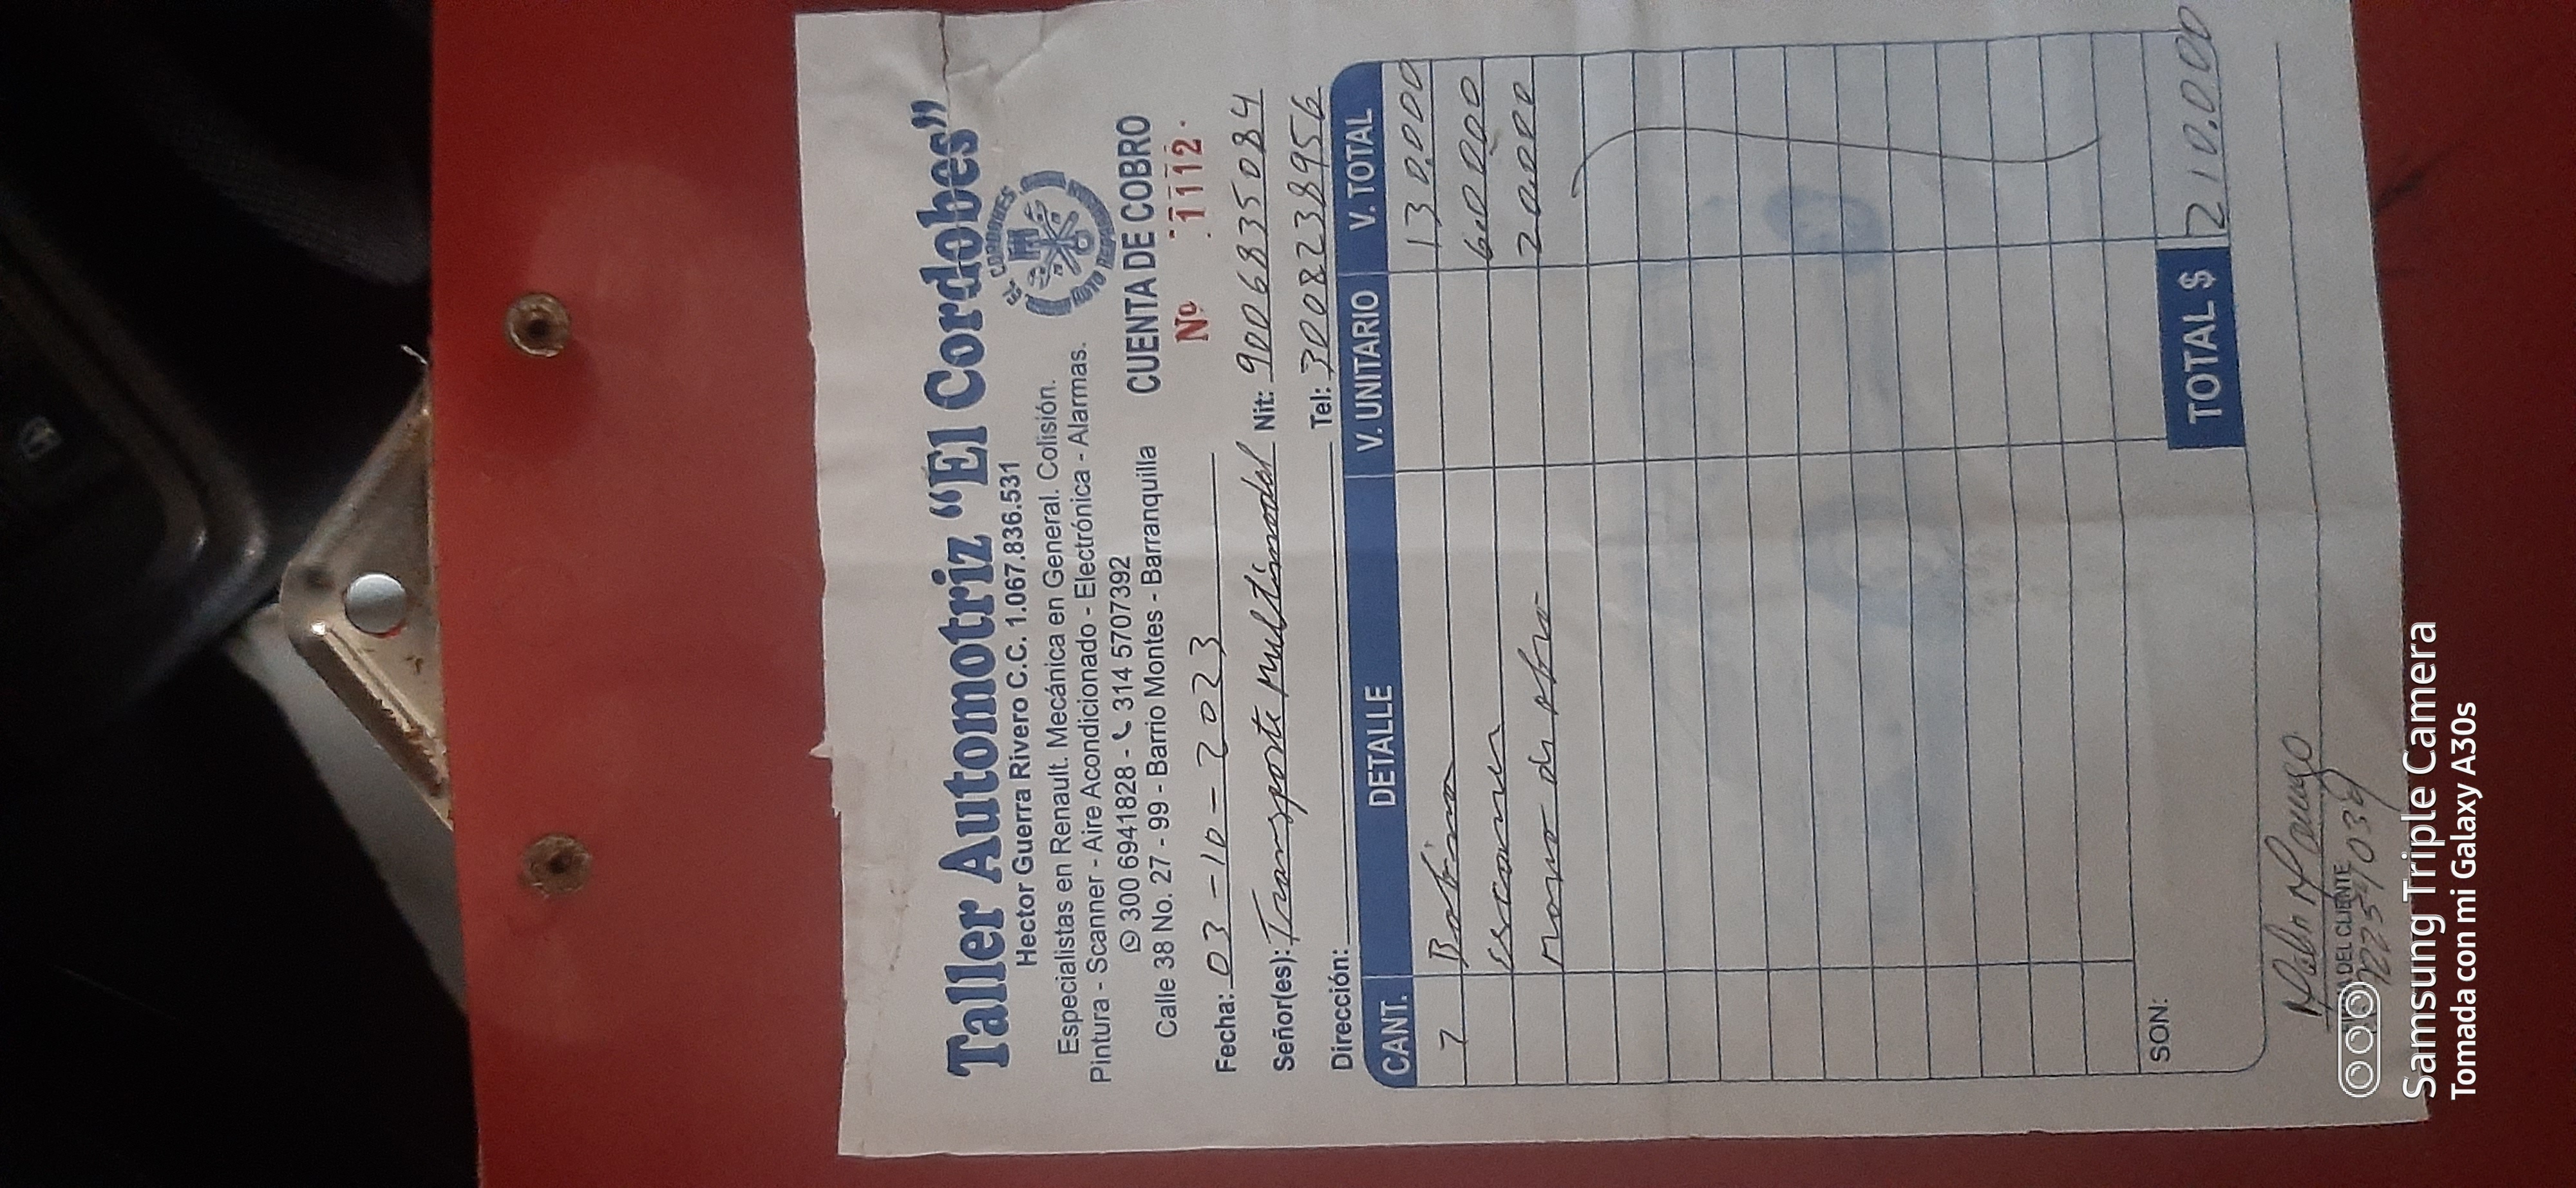 Taller Automotriz "El Cordobes"
Hector Guerra Rivero C.C. 1.067.836.531
Especialistas en Renault. Mecánica en General. Colisión.
Pintura - Scanner - Aire Acondicionado - Electrónica - Alarmas.
300 6941828 - 314 5707392
Calle 38 No. 27 - 99 - Barrio Montes - Barranquilla
EL CORDOBES
CUENTA DE COBRO
Nº 1112
Fecha: 03-10-2023
Señor(es): Transporte Multimodal Nit: 9006835084
Dirección: Tel: 3008238956
CANT. DETALLE V. UNITARIO V. TOTAL
1 Bobina 130.000
escaner 60.000
mano de obra 20.000
SON: TOTAL $ 210.000
DEL CLIENTE
Samsung Triple Camera
Tomada con mi Galaxy A30s